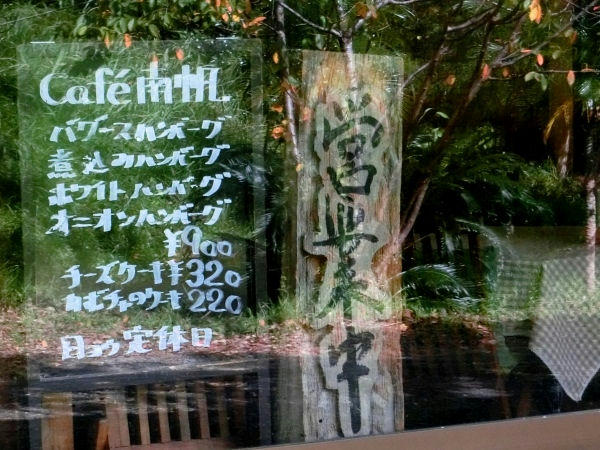 Café 南帆
バグースハンバーグ
煮込みハンバーグ
ホワイトハンバーグ
オニオンハンバーグ
¥900
チーズケーキ¥320
220
日よう定休日
営業中